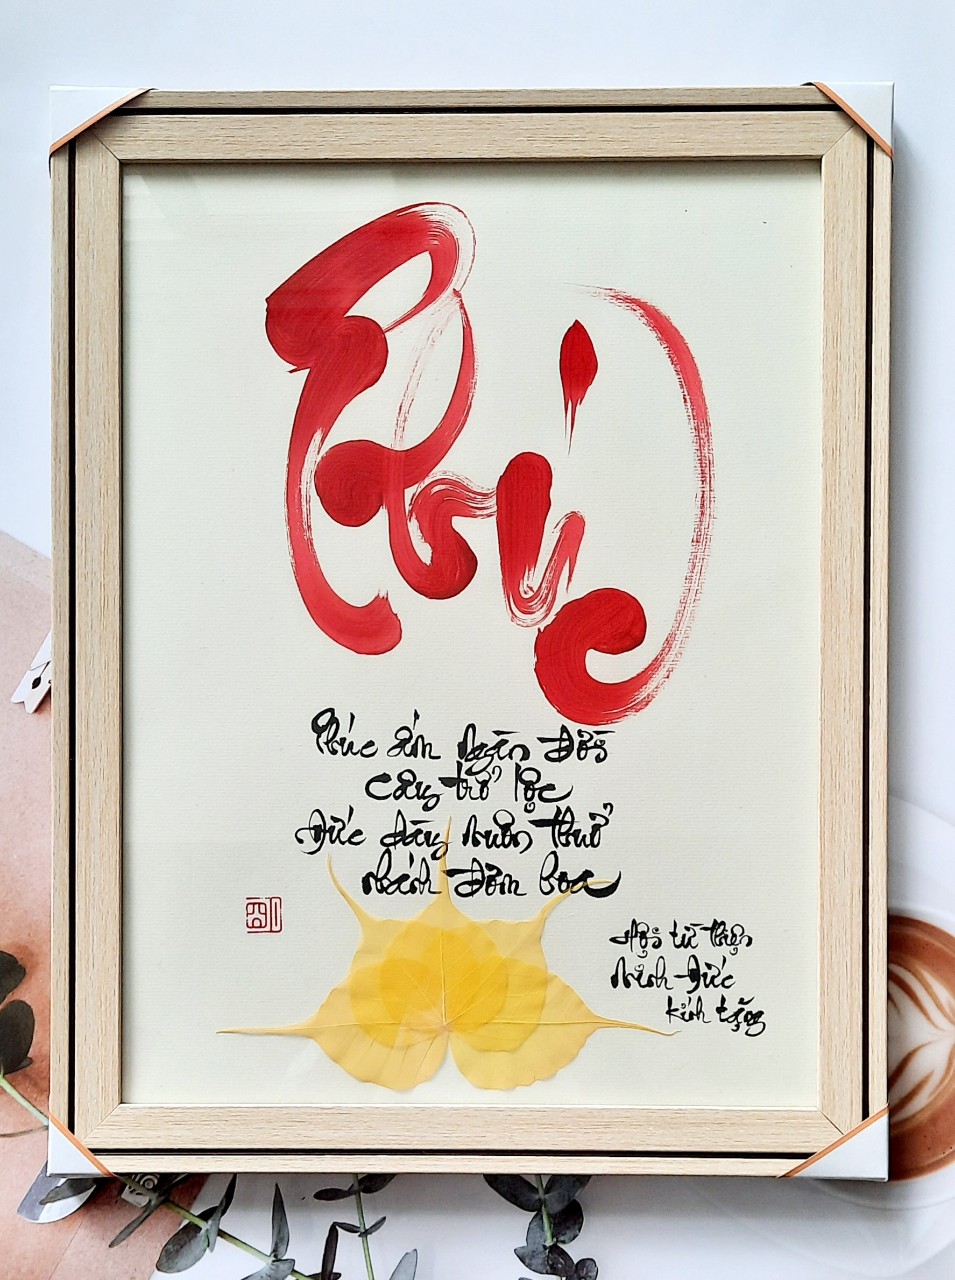 Phúc
Phúc ấm ngàn đời
cây trổ lộc
Đức dày muôn thuở
nhánh đơm hoa
Hội từ thiện
Minh Đức
kính tặng